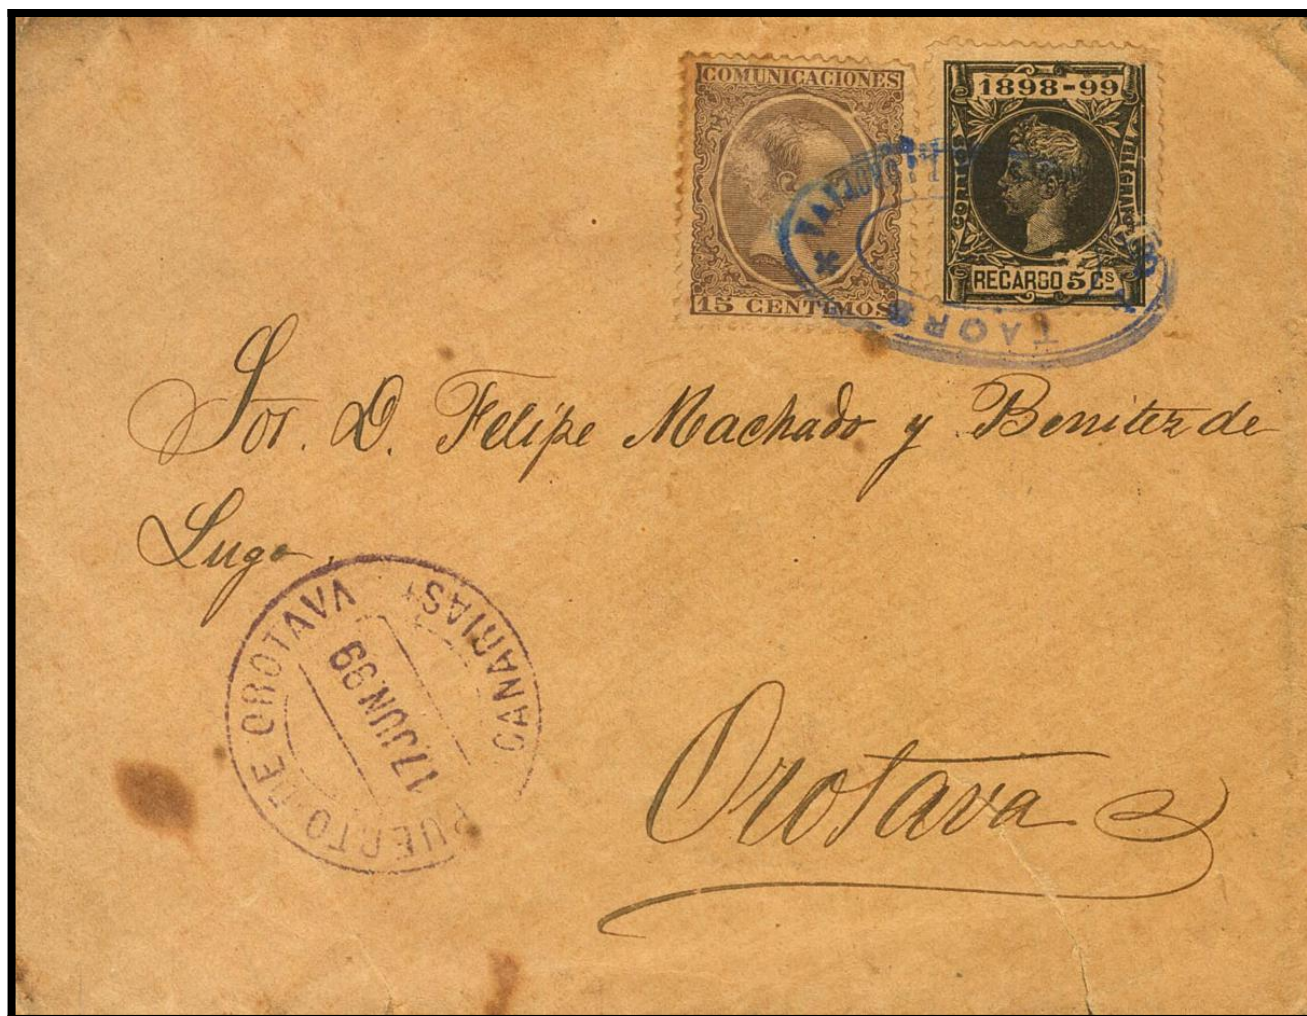 COMUNICACIONES
15 CENTIMOS
1898-99
CORREOS
TELEGRAFOS
RECARGO 5 Cs
OROTAVA
TAORO
Sor. D. Felipe Machado y Benitez de
Lugo.
PUERTO DE OROTAVA
17.JUN.99
CANARIAS
Orotava